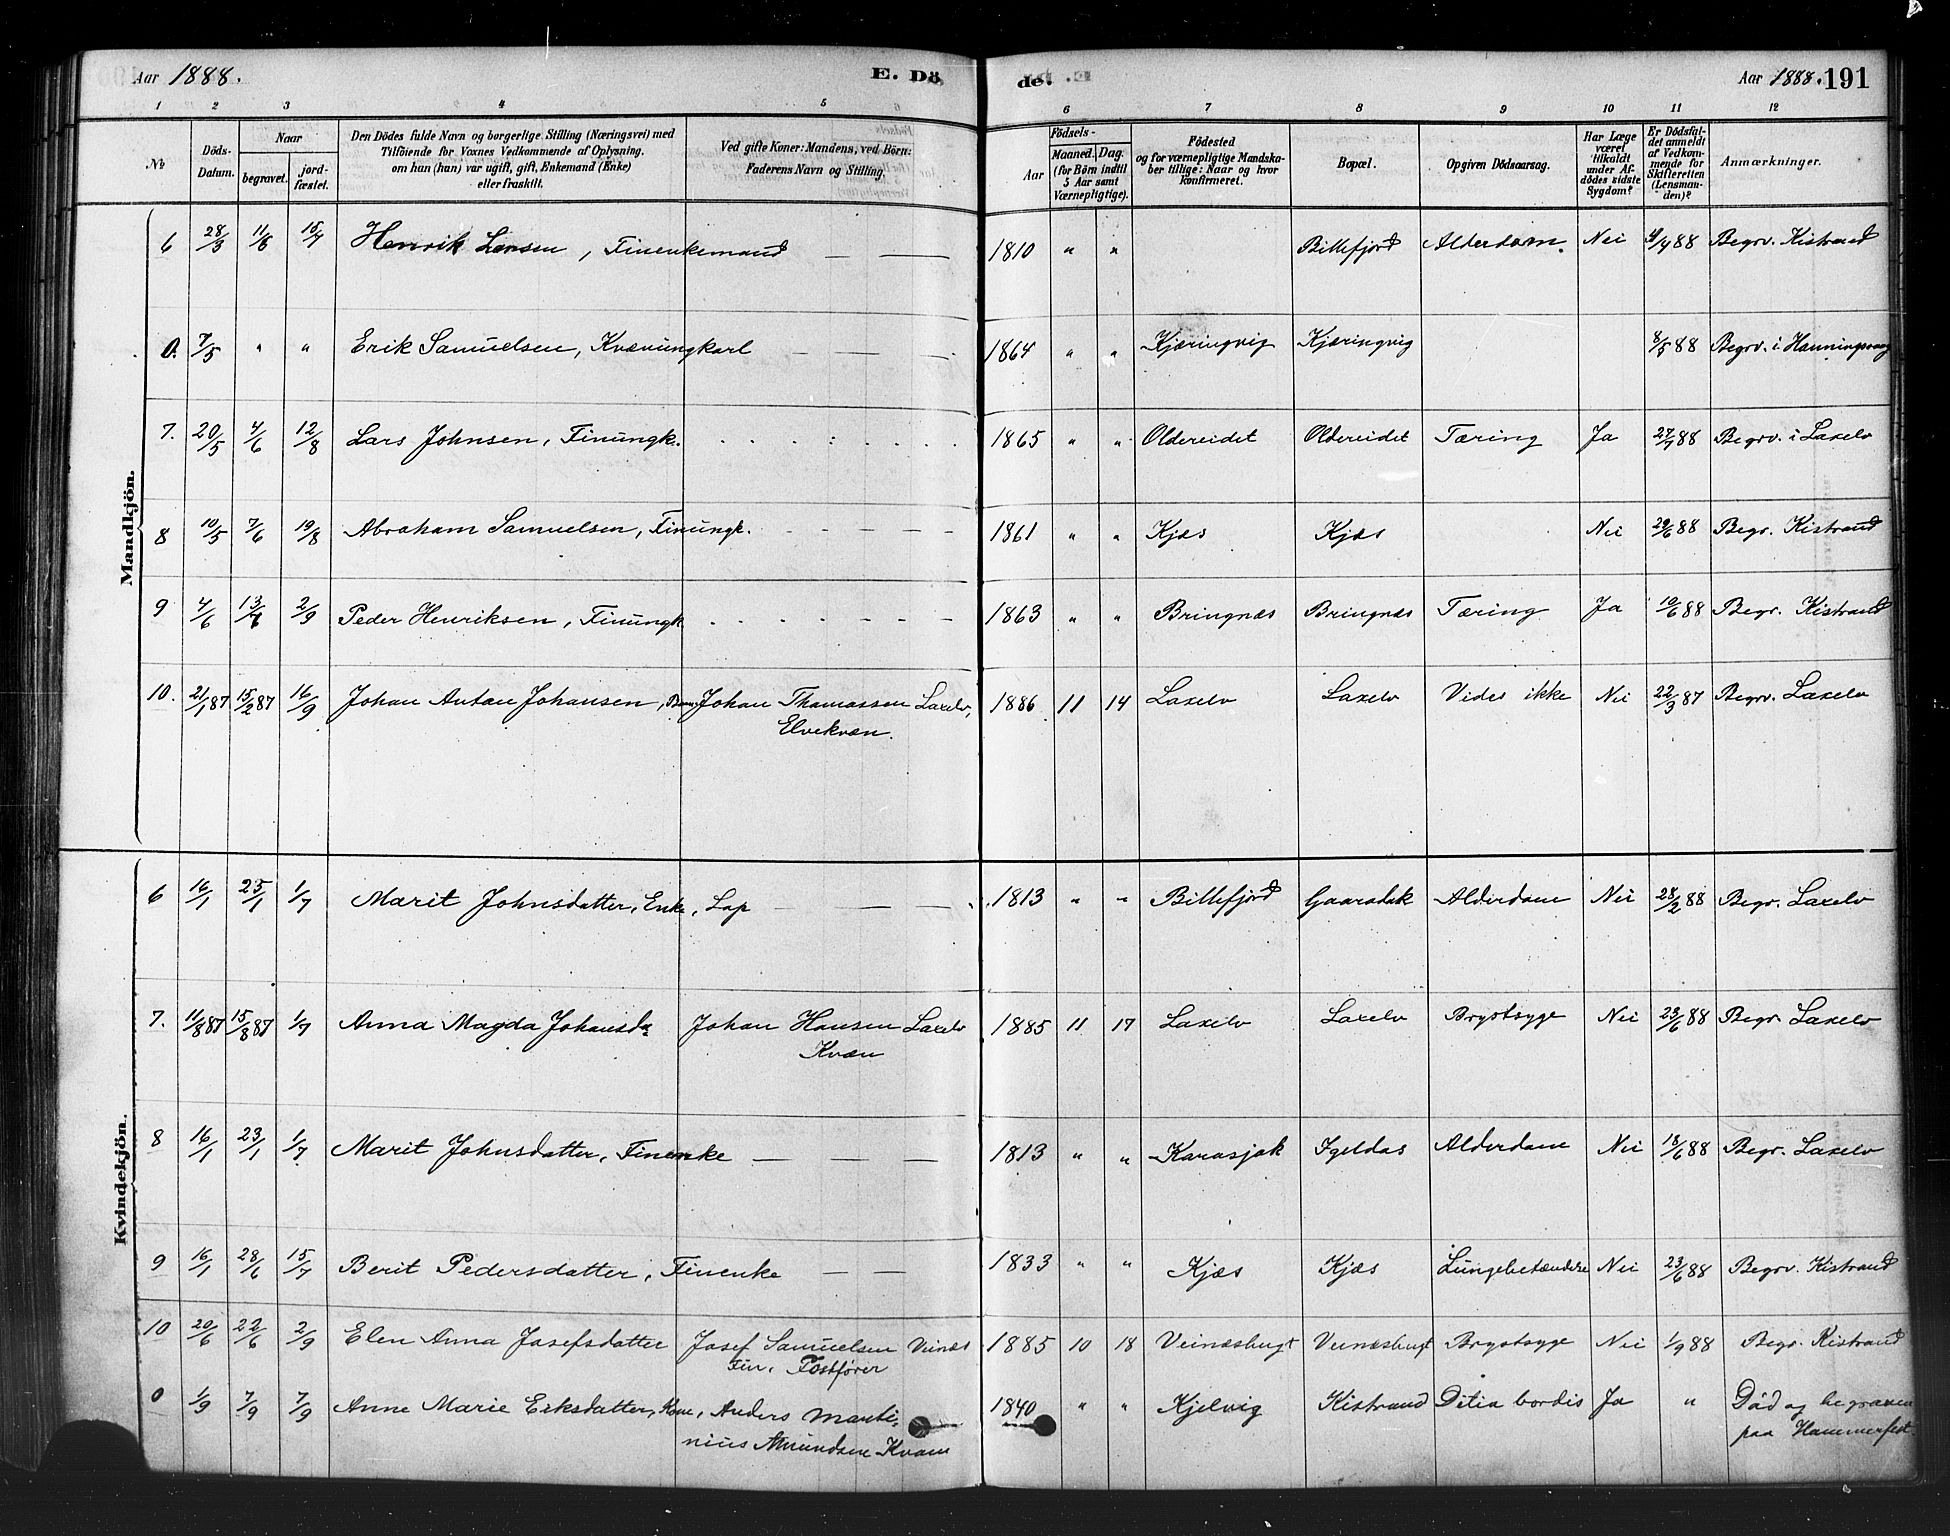 Aar 1888. E. Dö de. Aar 1888. 191
1 2 3 4 5 6 7 8 9 10 11 12
No
Döds-Datum.
Naar
begravet. jord-fæstet.
Den Dödes fulde Navn og borgerlige Stilling (Næringsvei) med
Tilföiende for Voxnes Vedkommende af Oplysning,
om han (han) var ugift, gift, Enkemand (Enke)
eller fraskilt.
Ved gifte Koner: Mandens, ved Börn:
Faderens Navn og Stilling.
Födsels-
Aar Maaned. Dag.
(for Börn indtil
5 Aar samt
Værnepligtige).
Födested
og for værnepligtige Mandska-
ber tillige: Naar og hvor
konfirmeret.
Bopæl.
Opgiven Dödsaarsag.
Har Læge
været
tilkaldt
under Af-
dödes sidste
Sygdom?
Er Dödsfal-
det anmeldt
af Vedkom-
mende for
Skifteretten
(Lensman-
den)?
Anmærkninger.
Mandkjön.
6 28/3 11/6 15/7 Henrik Larsen, Finenkemand — — 1810 " " Billefjord Alderdom. Nei 4/4 88 Begrv. Kistrand
0. 7/5 " " Erik Samuelsen, Kvænungkarl — — — 1864 " " Kjæringvig Kjæringvig 8/5 88 Begrv. i Honningsvaag
7. 20/5 4/6 12/8 Lars Johnsen, Finungk. 1865 " " Oldereidet Oldereidet Tæring Ja 27/7 88 Begrv. i Laxelv
8 10/5 7/6 19/8 Abraham Samuelsen, Finungk. — — — 1861 " " Kjæs Kjæs Nei 29/6 88 Begr. Kistrand
9 4/6 13/6 2/9 Peder Henriksen, Finungk 1863 " " Bringnæs Bringnæs Tæring Ja 10/6 88 Begr. Kistrand
10. 21/1 87 15/2 87 16/9 Johan Anton Johansen, Johan Thomassen Laxelv, 1886 11 14 Laxelv Laxelv Vides ikke Nei 22/3 87 Begrv. Laxelv
Elvekvæn.
Kvindekjön.
6 16/1 23/1 1/7 Marit Johnsdatter, Enke, Lap — — — 1813 " " Billefjord Gaaradak Alderdom Nei 28/2 88 Begr. Laxelv
7. 11/8 87 15/8 87 1/7 Anna Magda Johansda Johan Hansen Laxelv 1885 11 17 Laxelv Laxelv Brystsyge Nei 23/6 88 Begr. Laxelv
Kvæn
8 16/1 23/1 1/7 Marit Johnsdatter, Finenke — — — 1813 " " Karasjok Igeldas Alderdom Nei 18/6 88 Begr. Laxelv
9 16/1 28/6 15/7 Berit Pedersdatter, Finenke — — 1833 " " Kjæs Kjæs Lungebetændelse Nei 23/6 88 Begrv. Kistrand
10 20/6 22/6 2/9 Elen Anna Josefsdatter Josef Samuelsen Veinæs 1885 10 18 Veinæsbugt Veinæsbugt Brystsyge Nei 1/9 88 Begr. Kistrand
Fin, Postfører
0 1/9 7/9 7/9 Anne Marie Eriksdatter, Kone, Anders Marti- 1840 " " Kjelvig Kistrand Ja " Död og begraven
nius Amundsen Kvam paa Hammerfest.